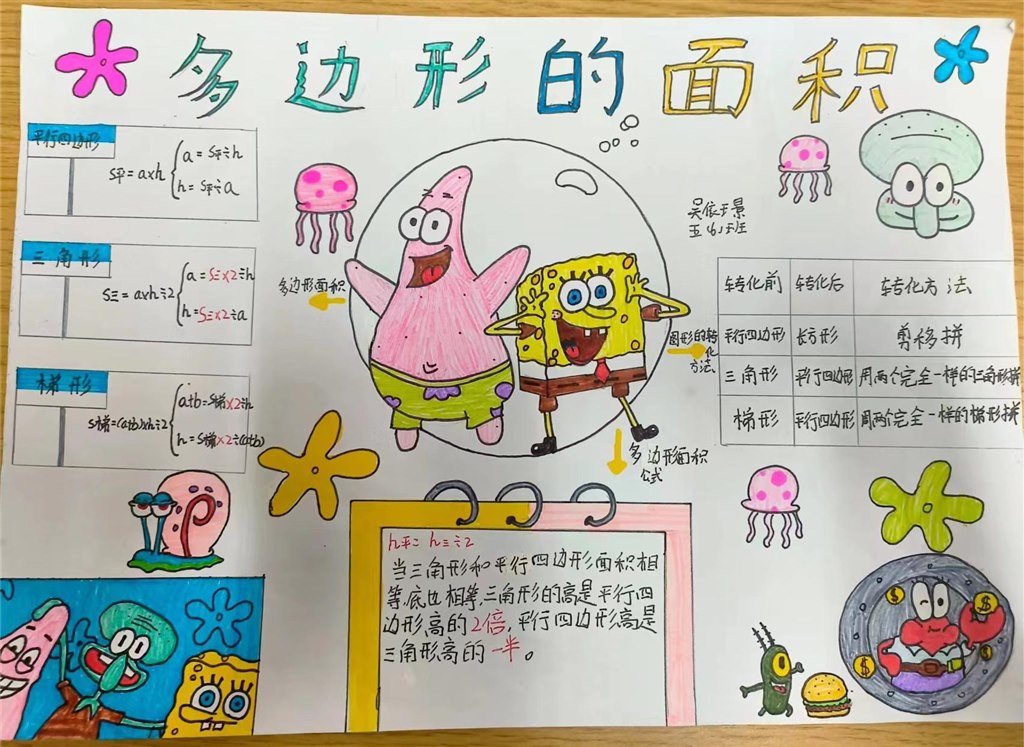 多边形的面积
平行四边形
S平=a×h
a=S平÷h
h=S平÷a
三角形
S三=a×h÷2
a=S三×2÷h
h=S三×2÷a
梯形
S梯=(a+b)×h÷2
a+b=S梯×2÷h
h=S梯×2÷(a+b)
多边形面积
图形的转
化
方法
多边形面积
公式
吴依璟
五(4)班
转化前 转化后 转化方法
平行四边形 长方形 剪移拼
三角形 平行四边形 用两个完全一样的三角形拼
梯形 平行四边形 用两个完全一样的梯形拼
h平=h三÷2
当三角形和平行四边形面积相
等,底也相等,三角形的高是平行四
边形高的2倍,平行四边形高是
三角形高的一半。
$
$
$
$